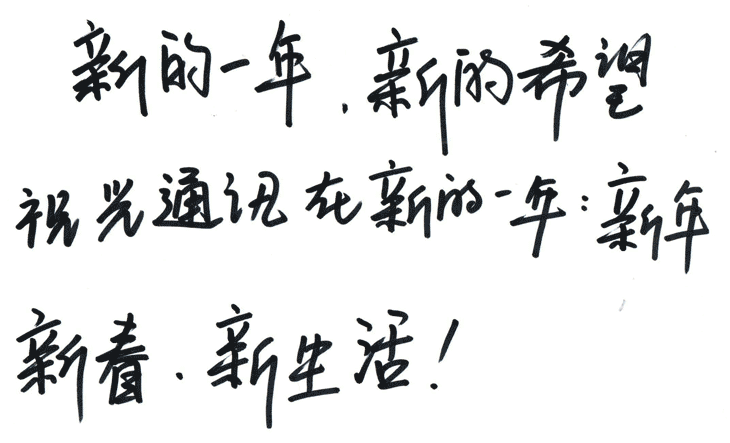 新的一年，新的希望
祝光通讯在新的一年：新年
新春.新生活！